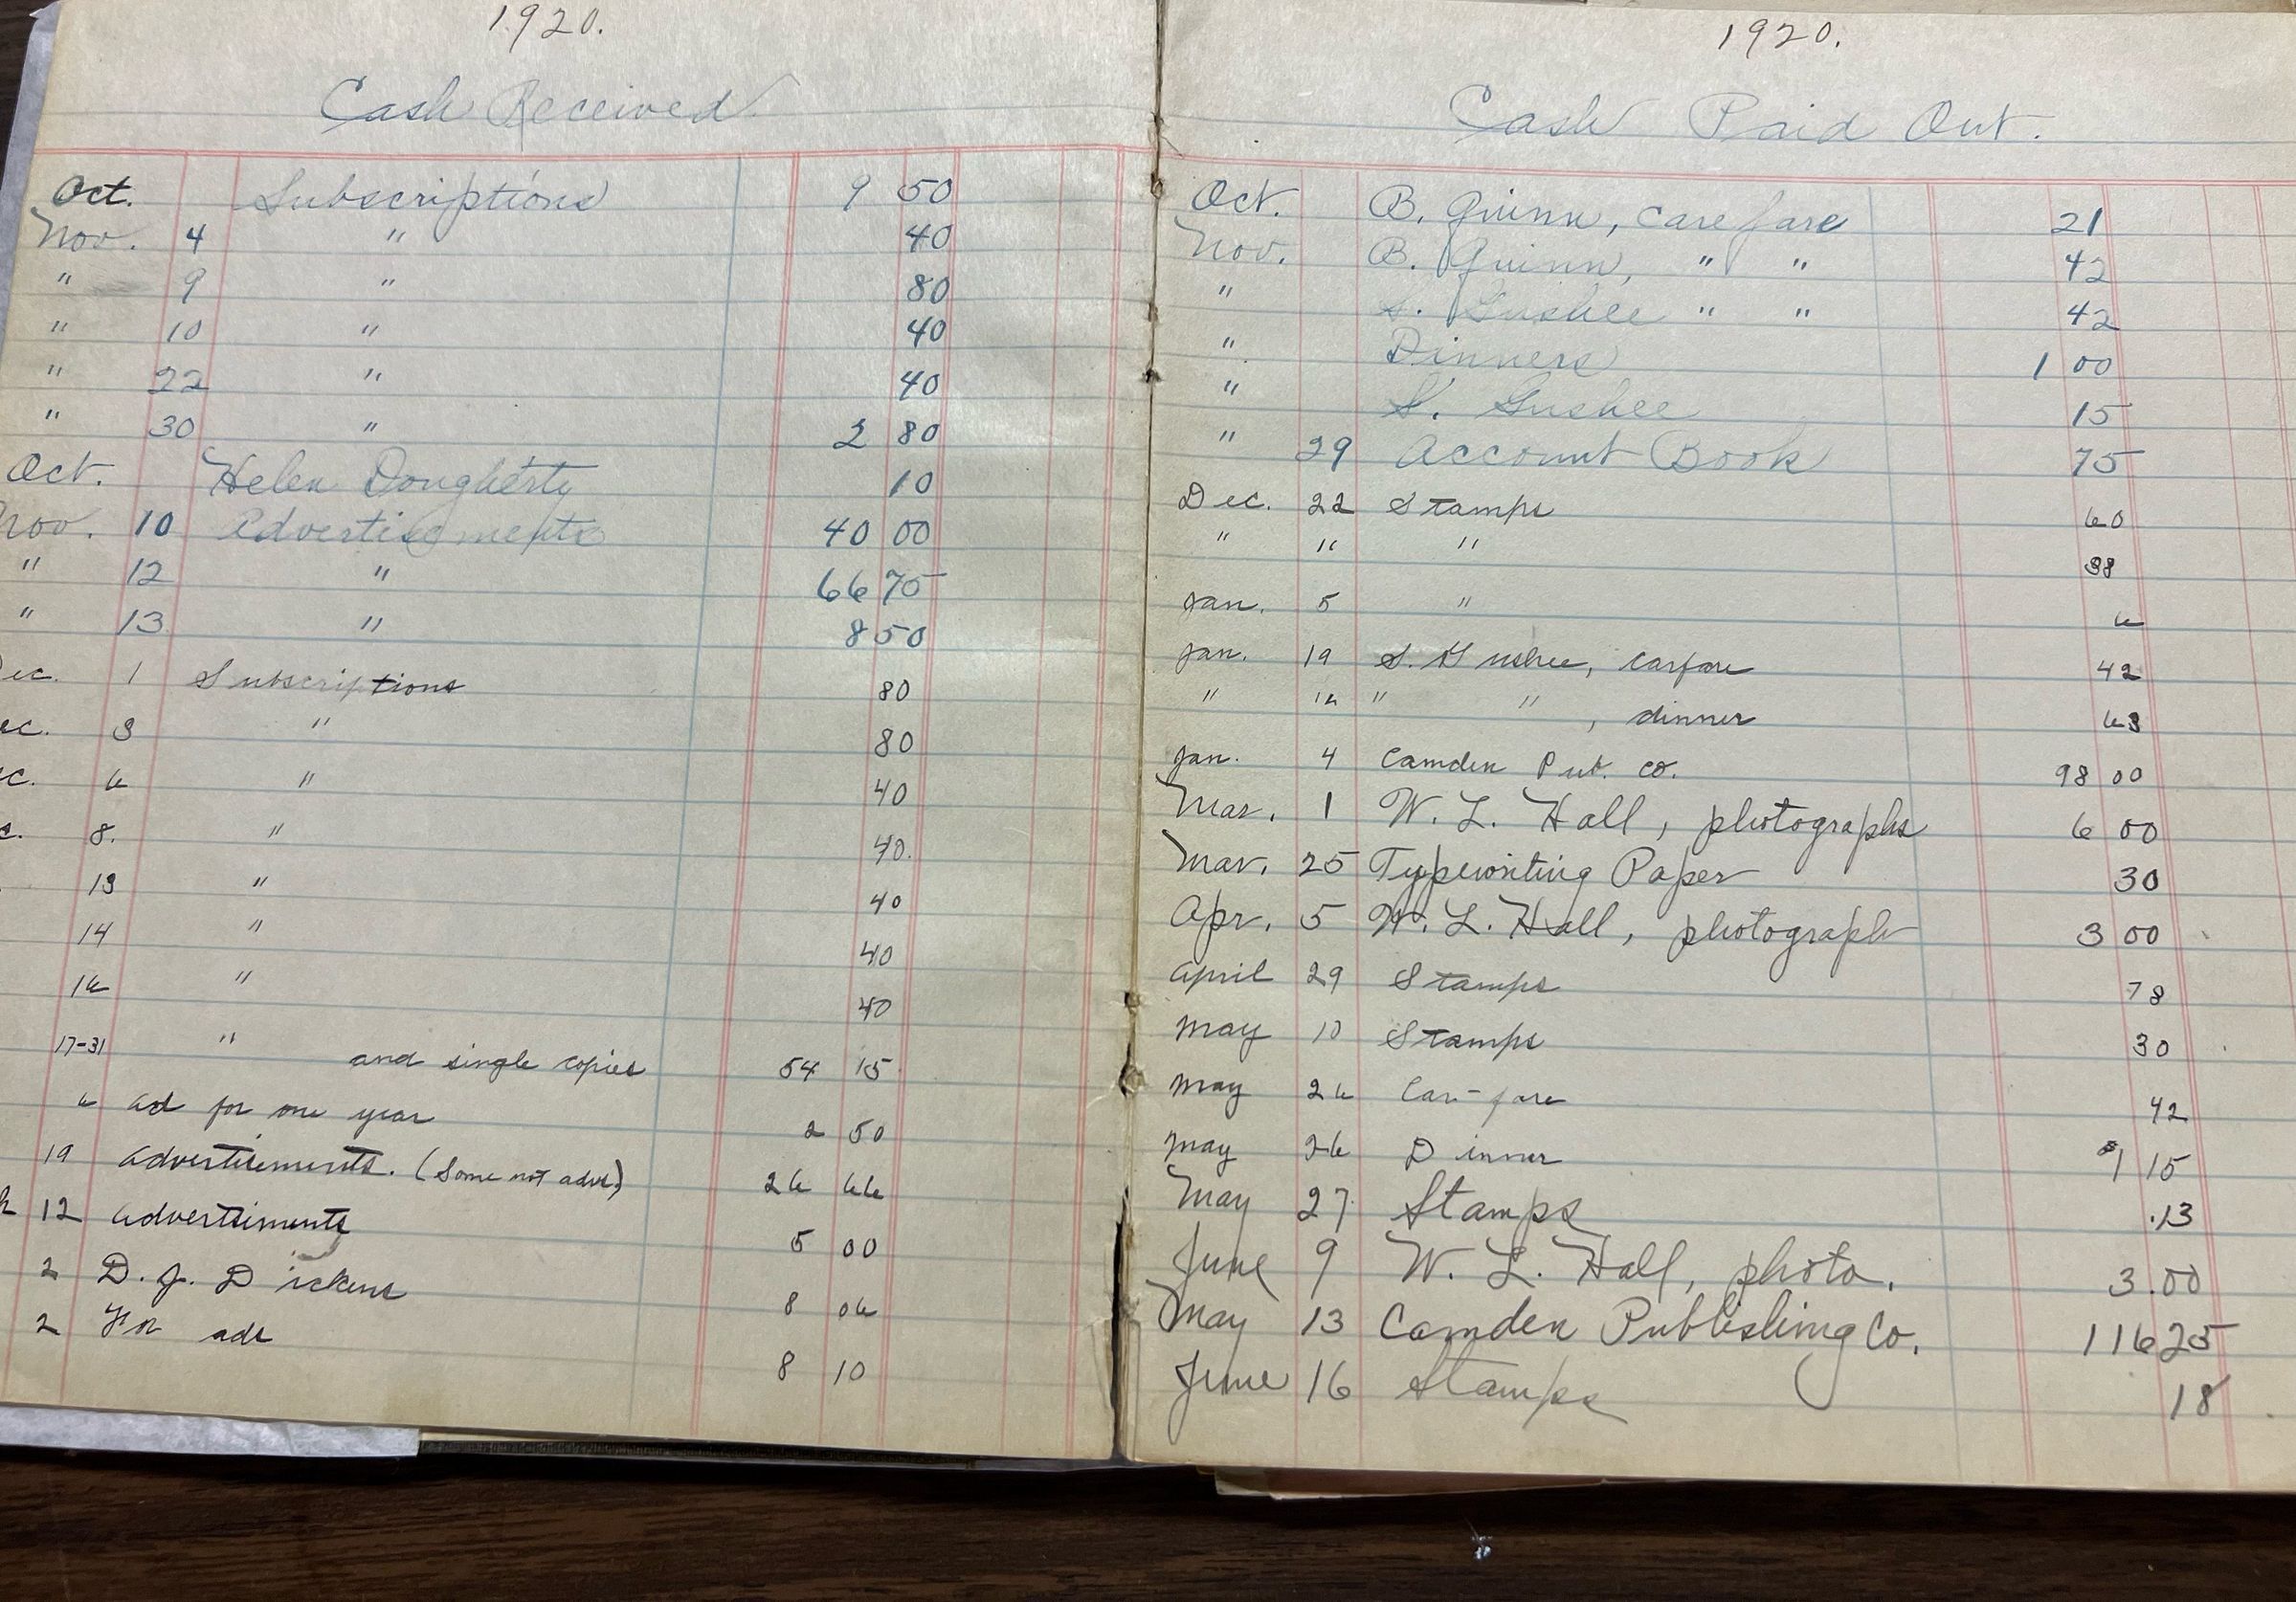 1920.
Cash Received
Oct. Subscriptions 9 50
Nov. 4 " 40
" 9 " 80
" 10 " 40
" 22 " 40
" 30 " 2 80
Oct. Helen Dougherty 10
Nov. 10 Advertisements 40 00
" 12 " 66 75
" 13 " 8 50
ec. 1 Subscriptions 80
ec. 3 " 80
c. 6 " 40
c. 8. " 40.
13 " 40
14 " 40
16 " 40
17-31 " and single copies 54 15
6 Ad for one year 2 50
19 Advertisements. (Some not advs) 26 66
h 12 Advertsiments 5 00
2 D. J. Dickens 8 06
2 For ads 8 10
1920.
Cash Paid Out.
Oct. B. Quinn, care fare 21
Nov. B. Quinn, " " 42
" S. Gushee " " 42
" Dinners 1 00
" S. Gushee 15
" 29 Account Book 75
Dec. 22 Stamps 60
" " " 38
Jan. 5 " 6
Jan. 19 S. Gushee, carfare 42
" " " " , dinner 63
Jan. 4 Camden Pub. Co. 98 00
Mar. 1 W. L. Hall, photographs 6 00
Mar. 25 Typewriting Paper 30
Apr. 5 W. L. Hall, photograph 3 00
April 29 Stamps 78
May 10 Stamps 30
May 26 Car-fare 42
May 26 Dinner $1 15
May 27 Stamps .13
June 9 W. L. Hall, photo. 3.00
May 13 Camden Publishing Co. 116 25
June 16 Stamps 18